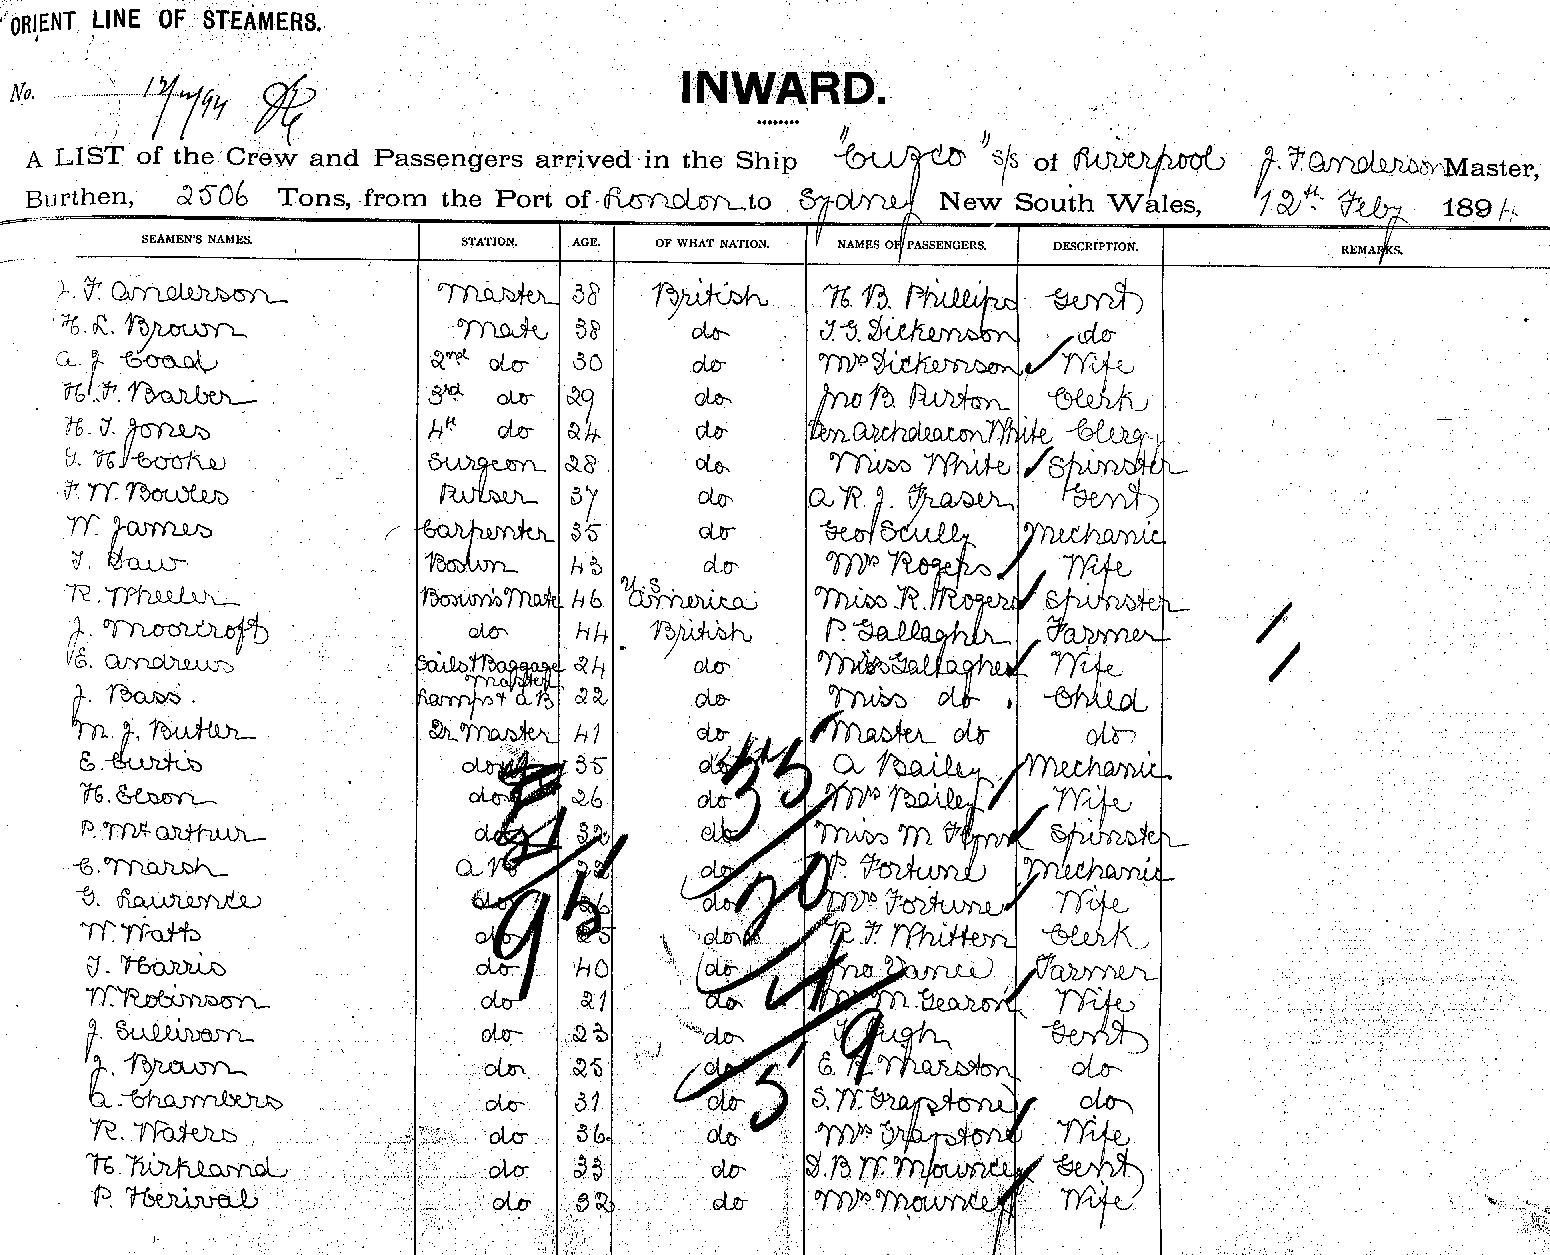 ORIENT LINE OF STEAMERS.
No. 12/2/94
INWARD.
A LIST of the Crew and Passengers arrived in the Ship "Cuzco" s/s of Liverpool J. F. Anderson Master,
Burthen, 2506 Tons, from the Port of London to Sydney New South Wales, 12th Feby 1894
SEAMEN'S NAMES. STATION. AGE. OF WHAT NATION. NAMES OF PASSENGERS. DESCRIPTION. REMARKS.
J. F. Anderson Master 38 British H. B. Phillips Gent
H. L. Brown Mate 38 do T. G. Dickenson do
A. J. Coad 2nd do 30 do Mrs Dickenson Wife
H. F. Barber 3rd do 29 do Jno B. Purton Clerk
H. T. Jones 4th do 24 do Ven Archdeacon White Clergy
G. H. Cooke Surgeon 28 do Miss White Spinster
F. W. Bowles Purser 37 do A. R. J. Fraser Gent
W. James Carpenter 35 do Geo Scully Mechanic
T. Daw Bosun 43 do Mrs Rogers Wife
R. Wheeler Bosun's Mate 46 U.S. America Miss R. Rogers Spinster
J. Moorcroft do 44 British P. Gallagher Farmer
E. Andrews Sails & Baggage Master 24 do Gallagher Wife
J. Bass. Lamps & A B 22 do Miss do Child
M. J. Butler Qr Master 41 do Master do do
E. Curtis do 35 do A Bailey Mechanic
H. Elson do 26 do Mrs Bailey Wife
P. McArthur do 32 do Miss M Spinster
C. Marsh A B do P. Fortune Mechanic
G. Laurence do do Mrs Fortune Wife
W. Watts do do R. F. Whitten Clerk
T. Harris do 40 do Jno Vance Farmer
W. Robinson do 21 do M. Gearon Wife
J. Sullivan do 23 do Gent
J. Brown do 25 do E. Marston do
A. Chambers do 31 do S. W. Grapstone do
R. Waters do 36 do Mrs Grapstone Wife
H. Kirkland do 33 do D. B. W. Mouncey Gent
P. Herival do 32 do Mrs Mouncey Wife